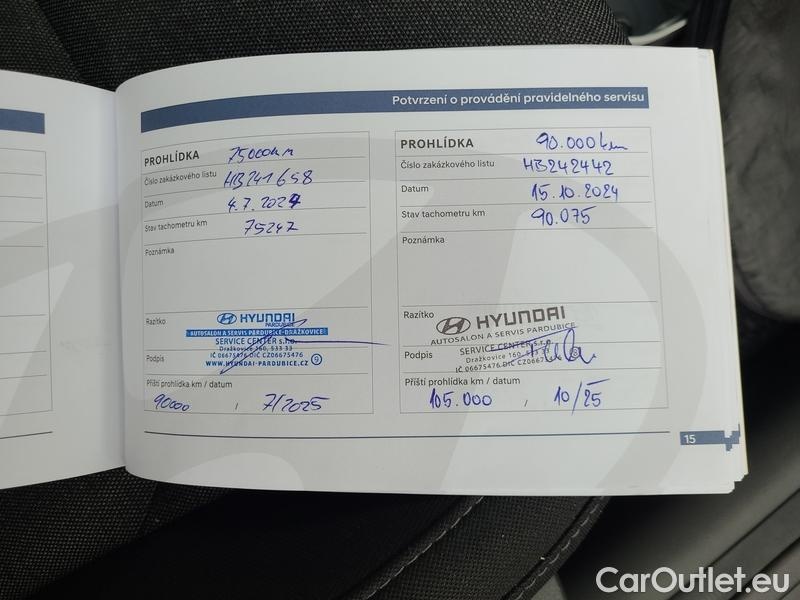 Potvrzení o provádění pravidelného servisu
PROHLÍDKA 75000km
Číslo zakázkového listu HB241658
Datum 4.7.2024
Stav tachometru km 75247
Poznámka
Razítko HYUNDAI
PARDUBICE
AUTOSALON A SERVIS PARDUBICE-DRAŽKOVICE
SERVICE CENTER s.r.o.
Dražkovice 160, 533 33
Podpis IČ 06675476 DIČ CZ06675476
WWW.HYUNDAI-PARDUBICE.CZ 9
Příští prohlídka km / datum
90000 / 7/2025
PROHLÍDKA 90.000km
Číslo zakázkového listu HB242442
Datum 15.10.2024
Stav tachometru km 90.075
Poznámka
Razítko HYUNDAI
AUTOSALON A SERVIS PARDUBICE
SERVICE CENTER s.r.o.
Podpis Dražkovice 160, 533 33
IČ 06675476 DIČ
Příští prohlídka km / datum
105.000 / 10/25
15
CarOutlet.eu